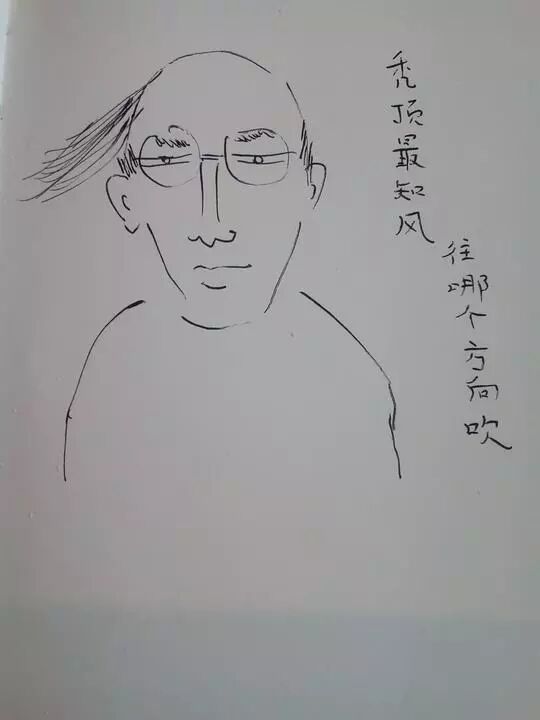 秃顶最知风
往哪个方向吹